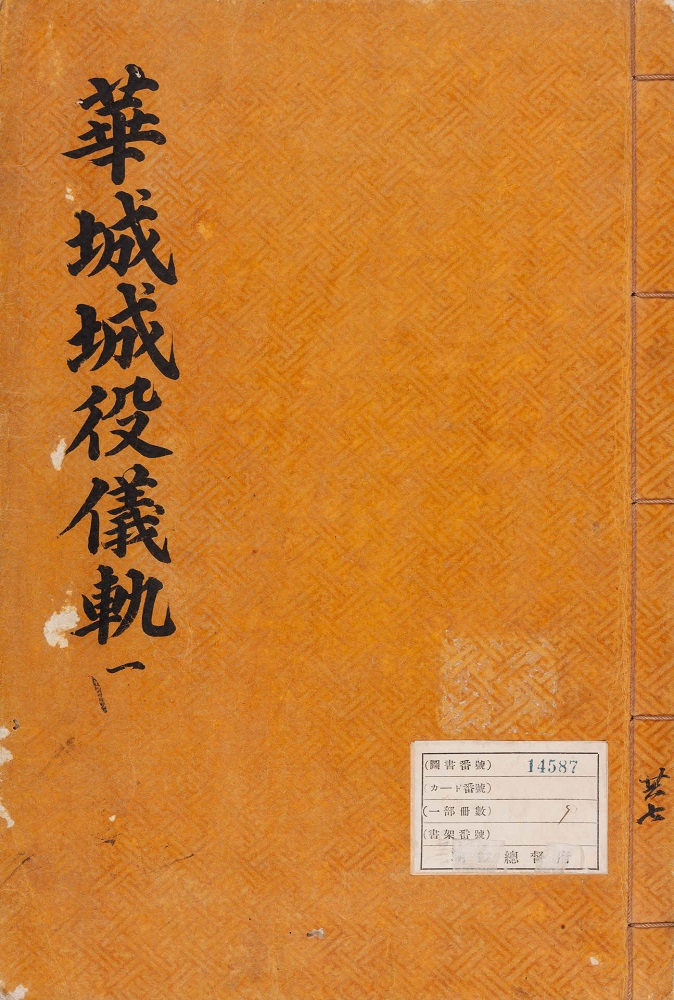 華城城役儀軌 一
(圖書番號) 14587
(カード番號)
(一部冊數) 9
(書架番號)
總督府
共七